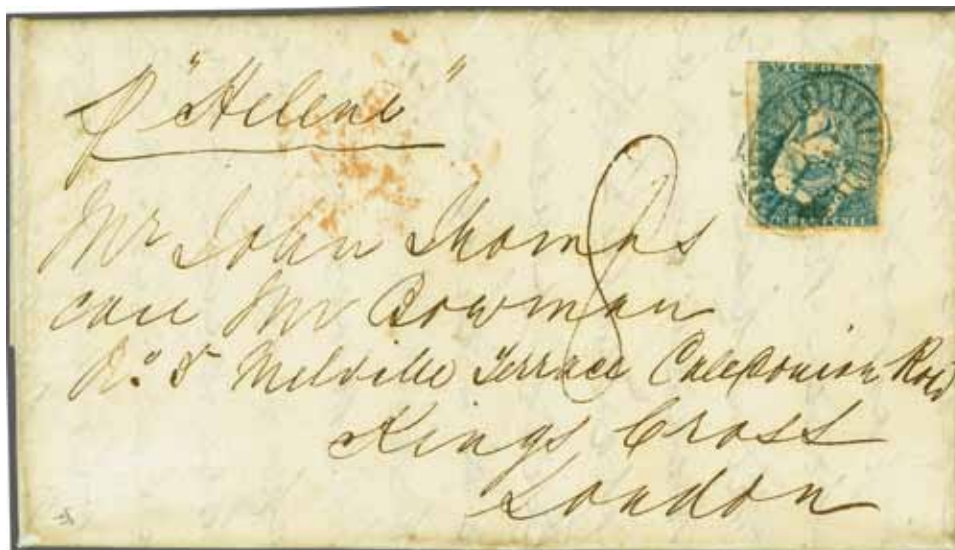 p "Helene"
VICTORIA
THREE PENCE
8
Mr John Thomas
care Mr Bowman
No. 5 Melville Terrace Caledonian Road
Kings Cross
London